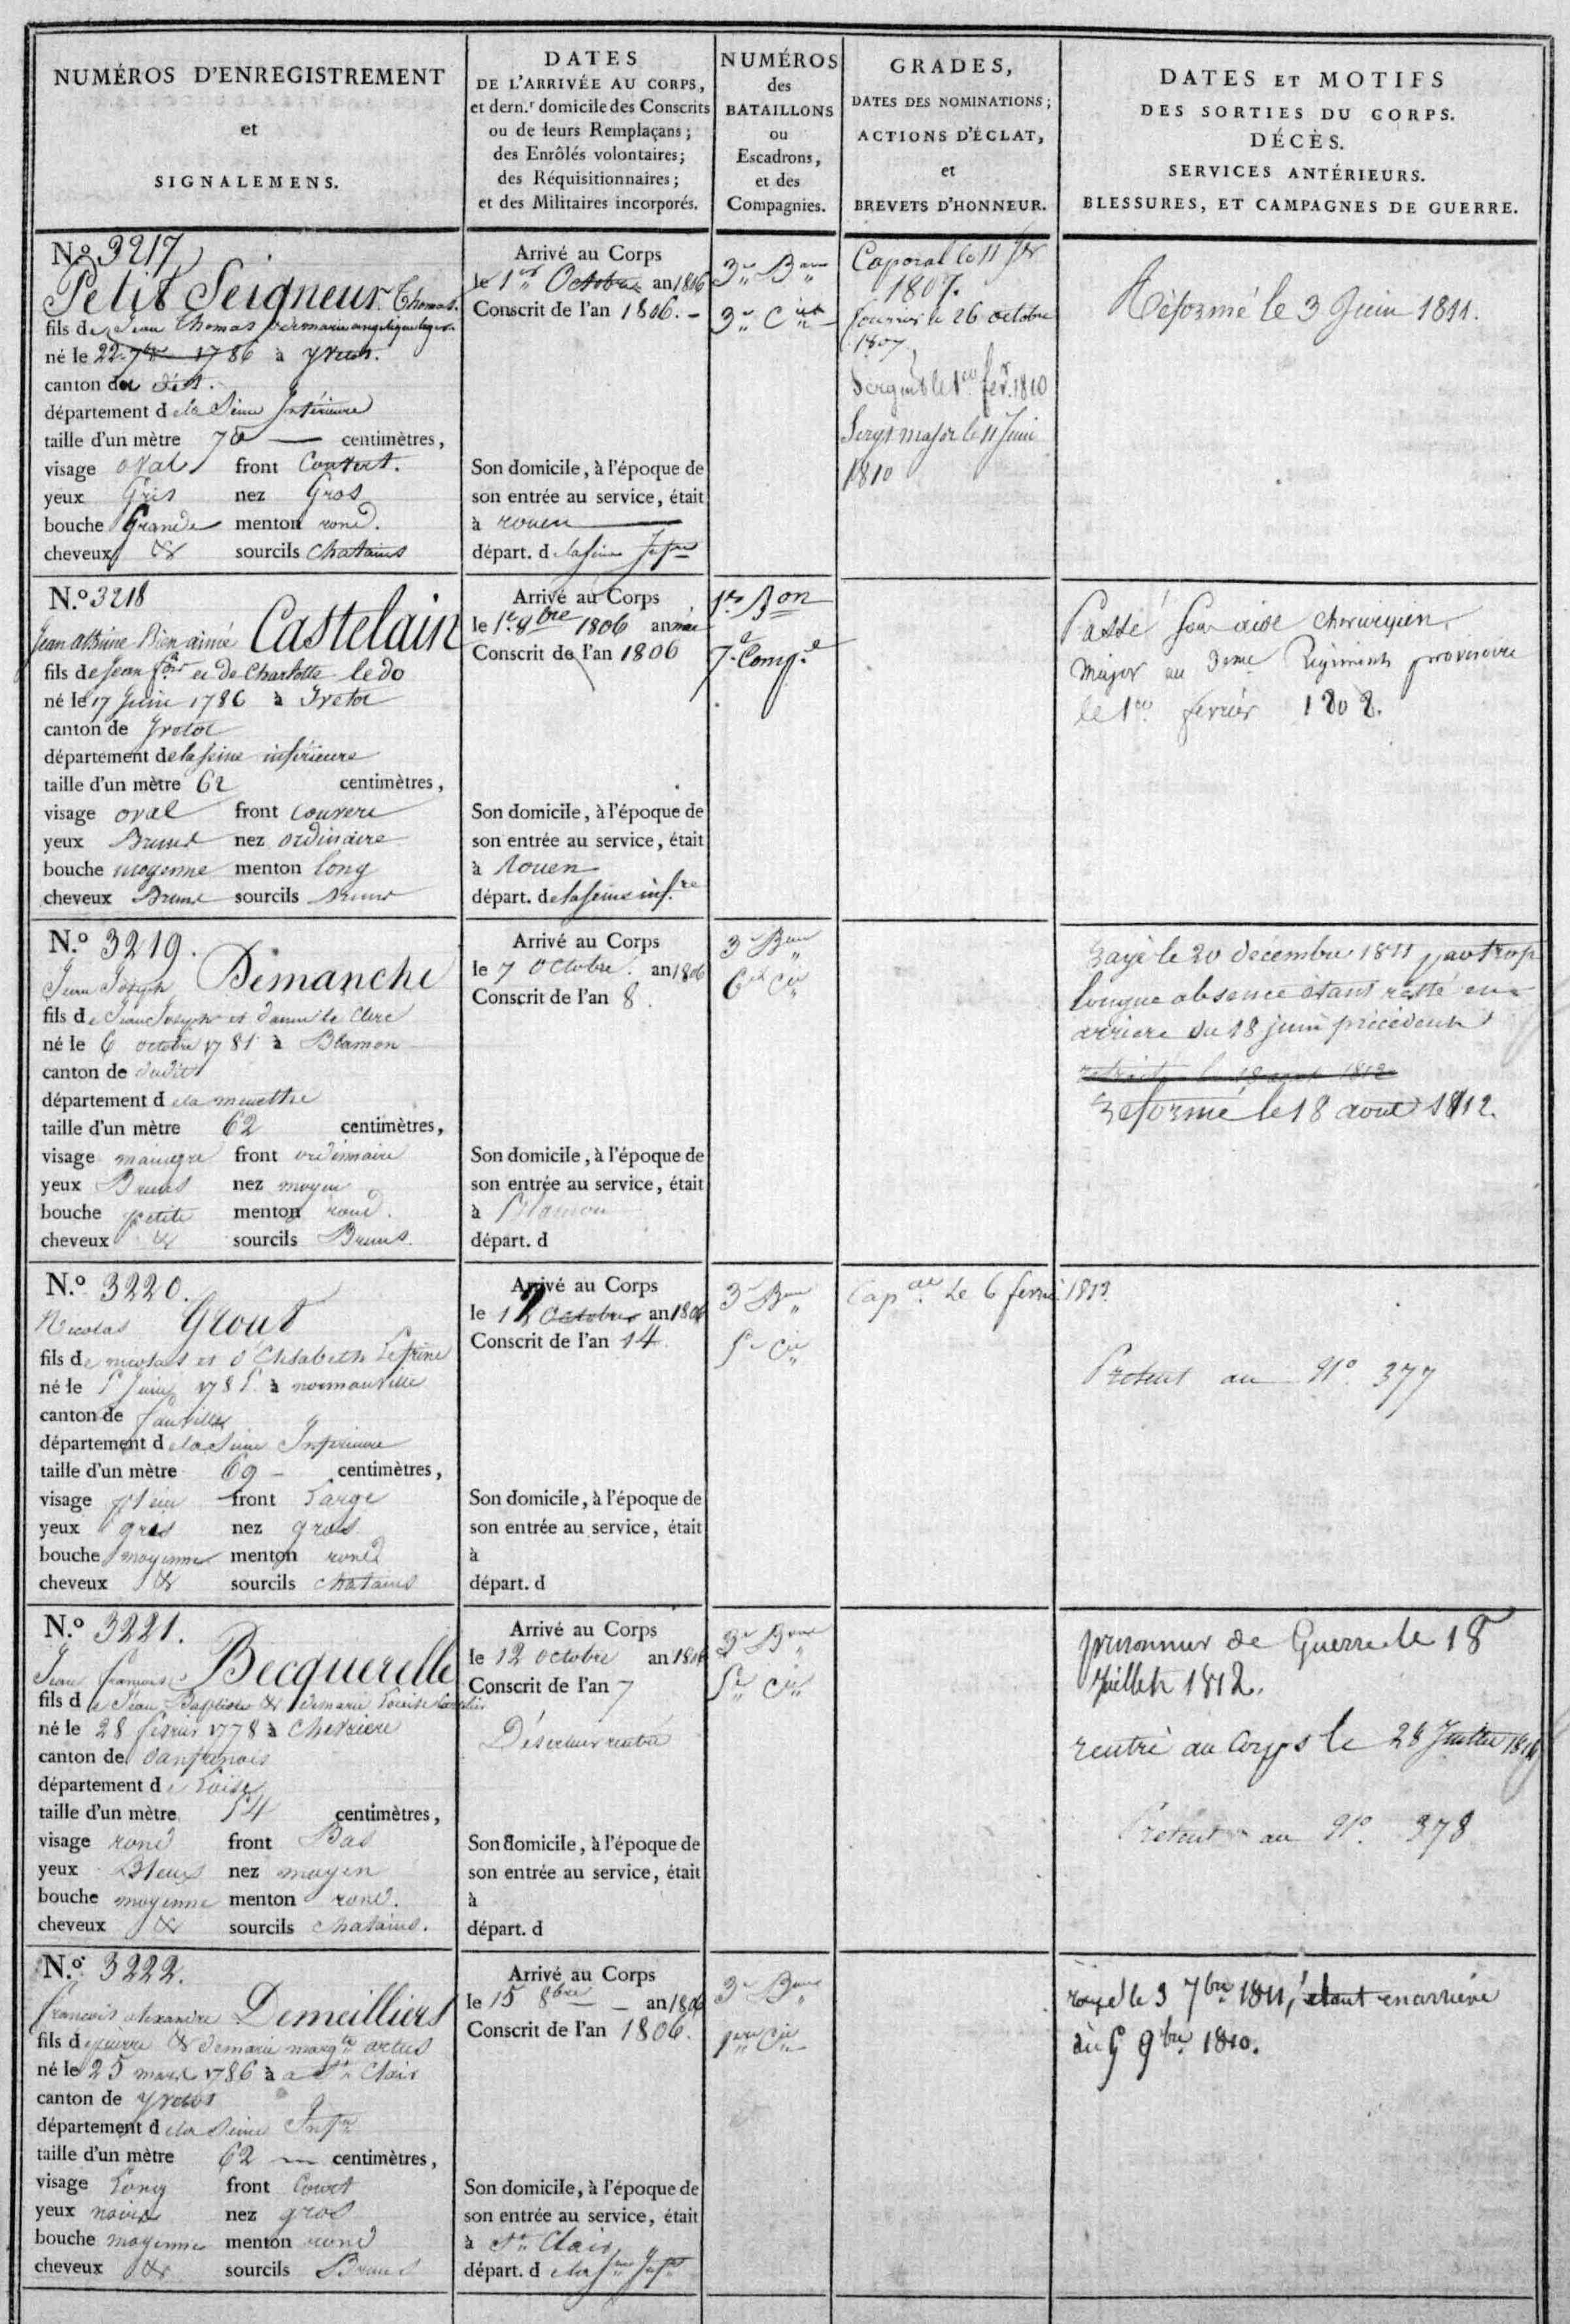 NUMÉROS D'ENREGISTREMENT
et
SIGNALEMENS.
DATES
DE L'ARRIVÉE AU CORPS,
et dern.r domicile des Conscrits
ou de leurs Remplaçans ;
des Enrôlés volontaires ;
des Réquisitionnaires ;
et des Militaires incorporés.
NUMÉROS
des
BATAILLONS
ou
Escadrons,
et des
Compagnies.
GRADES,
DATES DES NOMINATIONS ;
ACTIONS D'ÉCLAT,
et
BREVETS D'HONNEUR.
DATES ET MOTIFS
DES SORTIES DU CORPS.
DÉCÈS.
SERVICES ANTÉRIEURS.
BLESSURES, ET CAMPAGNES DE GUERRE.
N.o 3217
Petit Seigneur Thomas.
fils de Jean Thomas
né le 22 7bre 1786 à
canton du dit.
département de la Seine Inférieure
taille d'un mètre 70 centimètres,
visage oval front Couvert.
yeux Gris nez Gros
bouche Grande menton rond.
cheveux & sourcils Chatains
Arrivé au Corps
le 1er Octobre an 1806
Conscrit de l'an 1806.
Son domicile, à l'époque de
son entrée au service, était
à rouen
départ. de la Seine
3e Bon
3e Cie
Caporal le 11
1807.
fourrier le 26 octobre
1807
Sergent le 1er fev. 1810
Sergt major le 11 Juin
1810
Réformé le 3 Juin 1811.
N.o 3218
Bien aimé Castelain
fils de Jean et de Charlotte ledo
né le 17 Juin 1786 à Yvetot
canton de Yvetot
département de la Seine inférieure
taille d'un mètre 62 centimètres,
visage oval front couvert
yeux Bruns nez ordinaire
bouche moyenne menton long
cheveux Bruns sourcils bruns
Arrivé au Corps
le 1er 8bre 1806 an
Conscrit de l'an 1806
Son domicile, à l'époque de
son entrée au service, était
à Rouen
départ. de la Seine inf.re
1er Bon
7e Comp.e
Passé aide chirurgien
major au 3eme Regiment provisoire
le 1er fevrier 1808.
N.o 3219.
Jean Joseph Demanche
fils de Jean Joseph et d'anne le Clerc
né le 6 octobre 1781 à Blamon
canton de dudit
département de la meurthe
taille d'un mètre 62 centimètres,
visage maigre front ordinnaire
yeux Bruns nez moyen
bouche petite menton rond.
cheveux & sourcils Bruns.
Arrivé au Corps
le 7 Octobre. an 1806
Conscrit de l'an 8.
Son domicile, à l'époque de
son entrée au service, était
à Blamon
départ. d
3e Bon
6e Cie
Rayé le 20 décembre 1811 par trop
longue absence étant resté en
arriere du 18 juin précédent
Reformé le 18 aout 1812.
N.o 3220.
Nicolas Grout
fils de nicolas et d'Elisabeth Lefrene
né le 5 Juin 1785 à normanville
canton de fauville
département de la Seine Inferieure
taille d'un mètre 69 centimètres,
visage plein front Large
yeux gris nez gros
bouche moyenne menton rond
cheveux & sourcils chatains
Arrivé au Corps
le 12 Octobre an 1806
Conscrit de l'an 14
Son domicile, à l'époque de
son entrée au service, était
à
départ. d
3e Bon
5e Cie
Cap.al Le 6 fevrier 1813
au No. 377
N.o 3221.
Jean francois Becquerelle
fils de Jean Baptiste & de marie Louise
né le 28 fevrier 1778 à Chevriere
canton de
département de Loise
taille d'un mètre 54 centimètres,
visage rond front Bas
yeux Bleus nez moyen
bouche moyenne menton rond.
cheveux & sourcils chatains.
Arrivé au Corps
le 12 octobre an 1806
Conscrit de l'an 7
Déserteur rentré
Son domicile, à l'époque de
son entrée au service, était
à
départ. d
3e Bon
5e Cie
prisonnier de Guerre le 18
Juillet 1812.
rentré au Corps le 28 Juillet 1814
au No. 378
N.o 3222.
francois alexandre Demeilliers
fils de pierre & de marie marg.te artus
né le 25 mars 1786 à a St Clair
canton de Yvetot
département de la Seine Infre
taille d'un mètre 62 centimètres,
visage Long front Court
yeux noirs nez gros
bouche moyenne menton rond
cheveux & sourcils Bruns
Arrivé au Corps
le 15 8bre an 1806
Conscrit de l'an 1806.
Son domicile, à l'époque de
son entrée au service, était
à St Clair
départ. de la Sne Infre
3e Bon
1ere Cie
rayé le 3 7bre 1811, étant en arriere
du 5 9bre 1810.